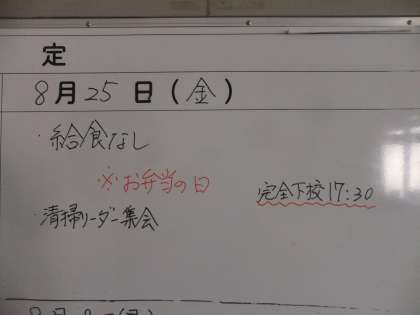 定
8月25日(金)
・給食なし
※お弁当の日
完全下校17:30
・清掃リーダー集会